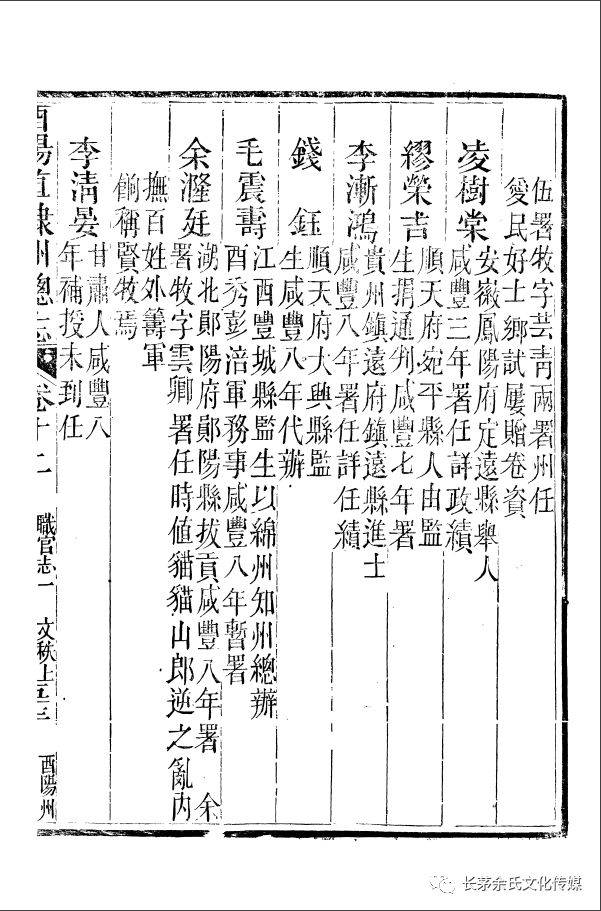 伍署牧字芸靑兩署州任
愛民好士鄉試屢贈卷資
凌樹棠
安徽鳳陽府定遠縣舉人
咸豐三年署任詳政績
繆榮吉
順天府宛平縣人由監
生捐通判咸豐七年署
李漸鴻
貴州鎮遠府鎮遠縣進士
咸豐八年署任詳任績
錢鈺
順天府大興縣監
生咸豐八年代辦
毛震壽
江西豐城縣監生以綿州知州總辦
酉秀彭涪軍務事咸豐八年暫署
余瀣廷
湖北鄖陽府鄖陽縣拔貢咸豐八年署 余
署牧字雲卿署任時値貓貓山郎逆之亂內
撫百姓外籌軍
餉稱賢牧焉
李淸晏
甘肅人咸豐八
年補授未到任
酉陽直隸州總志 卷十二 職官志一 文秩上五三 酉陽州
长茅余氏文化传媒